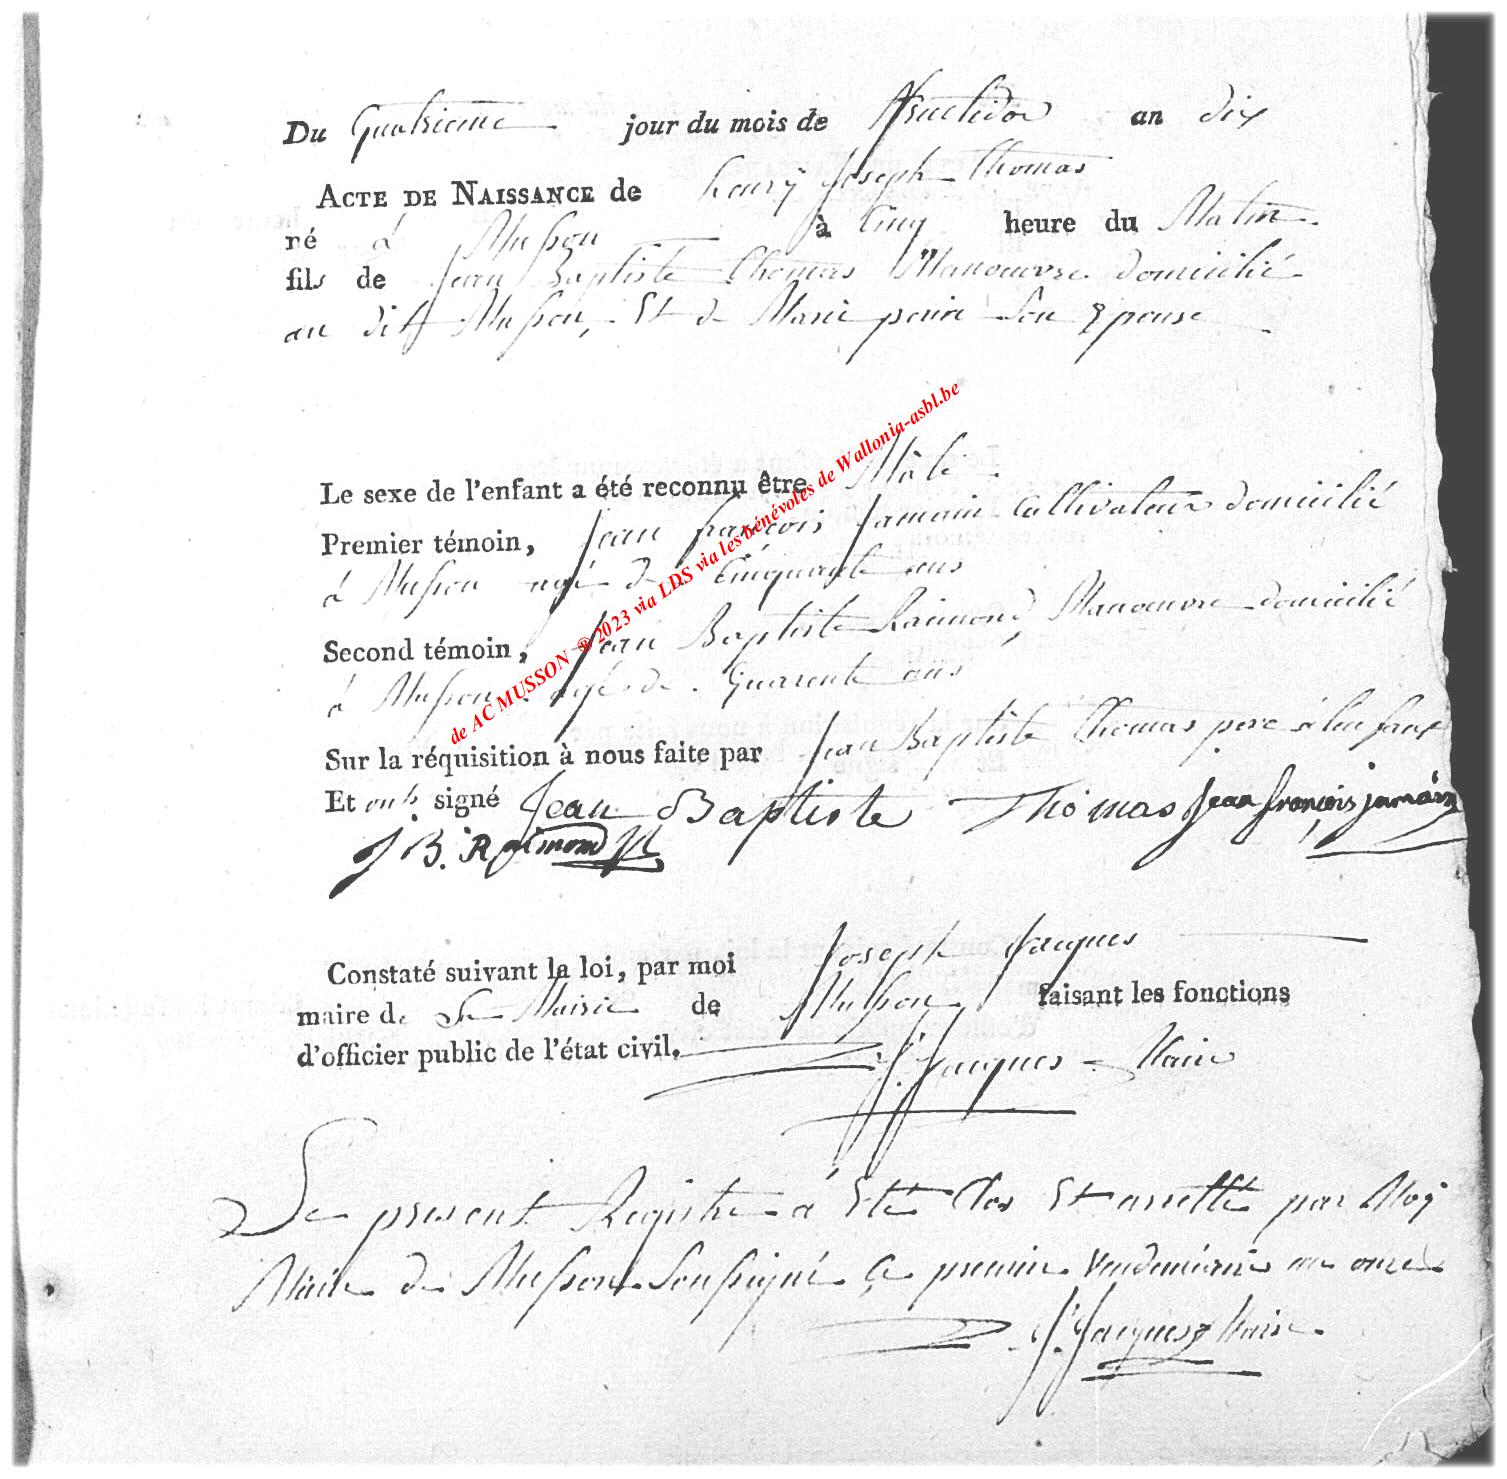 Du Quatrieme jour du mois de fructidor an dix
ACTE DE NAISSANCE de henrÿ Joseph Thomas
né à Musson à Cinq heure du Matin
fils de Jean Baptiste Thomas Manoeuvre domicilié
au dit Musson, Et de Marie son Epouse
Le sexe de l'enfant a été reconnu être Mâle
Premier témoin, Jean françois Jamain Cultivateur domicilié
à Musson agé de Cinquante ans
Second témoin, Jean Baptiste Raimond, Manoeuvre domicilié
à Musson agé de Quarente ans
Sur la réquisition à nous faite par Jean Baptiste Thomas pere
Et ont signé Jean Baptiste Thomas Jean françois jamain
J B. Raimond
Constaté suivant la loi, par moi Joseph Jacques
maire de La Mairie de Musson faisant les fonctions
d'officier public de l'état civil. J. Jacques Maire
Le present Registre à Eté Clos Et arretté par Moÿ
Maire de Musson Soussigné Ce premier Vendemiaire an onze
J. Jacques Maire
de AC MUSSON ® 2023 via LDS via les bénévoles de Wallonia-asbl.be